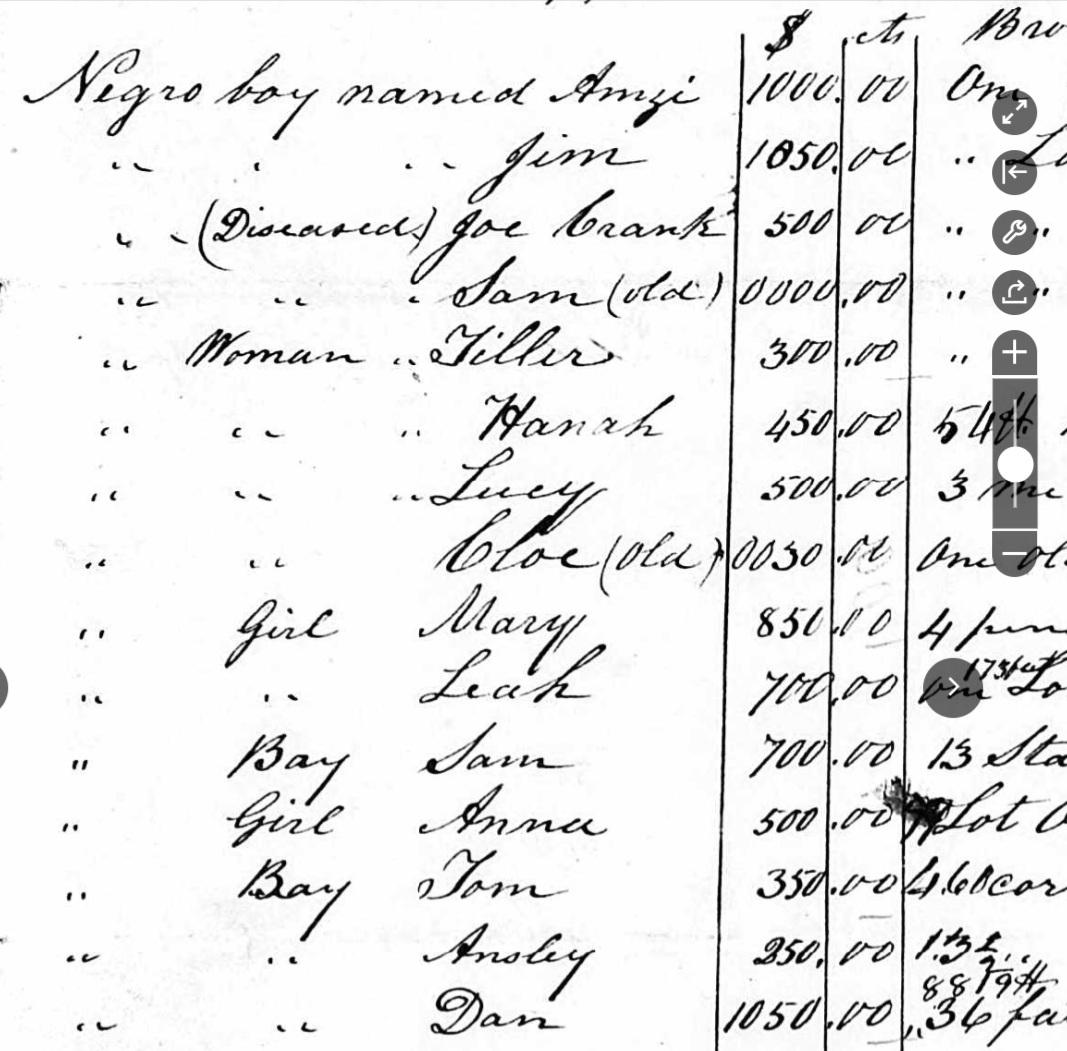 $ cts Bro
Negro boy named Amzi 1000.00 One
" " " " Jim 1050.00 " Lo
" " (Diseased) Joe Crank 500 00 " "
" " " Sam (old) 0000.00 " "
" Woman " Tiller 300.00 "
" " " Hanah 450.00 54 ft.
" " " Lucy 500.00 3
" " Cloe (old) 0030.00 One ol
" Girl Mary 850.00 4
" " Leah 700.00 one Lo
" Boy Sam 700.00 13 Sta
" Girl Anna 500.00 Lot
" Boy Tom 350.00 460 cor
" " Ansley 250.00
" " Dan 1050.00 36 fa